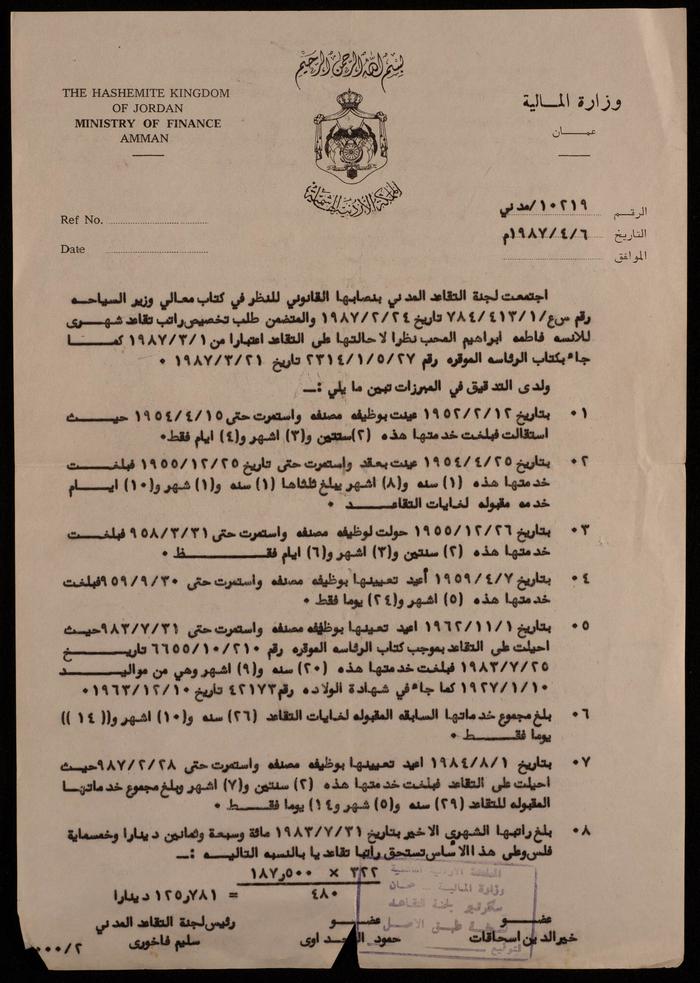 بسم الله الرحمن الرحيم
THE HASHEMITE KINGDOM
OF JORDAN
MINISTRY OF FINANCE
AMMAN
وزارة المالية
عمان
المملكة الأردنية الهاشمية
Ref No.
Date
الرقم ١٠٢١٩/مدني
التاريخ ١٩٨٧/٤/٦م
الموافق
اجتمعت لجنة التقاعد المدني بنصابها القانوني للنظر في كتاب معالي وزير السياحه
رقم س ع/٧٨٤/٤١٣/١ تاريخ ١٩٨٧/٢/٢٤ والمتضمن طلب تخصيص راتب تقاعد شهرى
للانسه فاطمه ابراهيم المحب نظرا لاحالتها على التقاعد اعتبارا من ١٩٨٧/٣/١ كما
جاء بكتاب الرئاسه الموقره رقم ٢٣١٤/١/٥/٢٧ تاريخ ١٩٨٧/٣/٢١ ٠
ولدى التدقيق في المبرزات تبين ما يلي :ـ
٠١ بتاريخ ١٩٥٢/٢/١٢ عينت بوظيفه مصنفه واستمرت حتى ١٩٥٤/٤/١٥ حيث
استقالت فبلغت خدمتها هذه (٢)سنتين و(٣) اشهر و(٤) ايام فقط٠
٠٢ بتاريخ ١٩٥٤/٤/٢٥ عينت بعقد واستمرت حتى تاريخ ١٩٥٥/١٢/٢٥ فبلغت
خدمتها هذه (١) سنه و(٨) اشهر يبلغ ثلثاها (١) سنه و(١) شهر و(١٠) ايام
خدمه مقبوله لغايات التقاعد ٠
٠٣ بتاريخ ١٩٥٥/١٢/٢٦ حولت لوظيفه مصنفه واستمرت حتى ٩٥٨/٣/٣١ فبلغت
خدمتها هذه (٢) سنتين و(٣) اشهر و(٦) ايام فقط ٠
٠٤ بتاريخ ١٩٥٩/٤/٧ أعيد تعيينها بوظيفه مصنفه واستمرت حتى ٩٥٩/٩/٣٠فبلغت
خدمتها هذه (٥) اشهر و(٢٤) يوما فقط ٠
٠٥ بتاريخ ١٩٦٢/١١/١ اعيد تعينها بوظيفه مصنفه واستمرت حتى ٩٨٣/٧/٣١حيث
احيلت على التقاعد بموجب كتاب الرئاسه الموقره رقم ٦٦٥٥/١٠/٢١٠ تاريخ
١٩٨٣/٧/٢٥ فبلغت خدمتها هذه (٢٠) سنه و(٩) اشهر وهي من مواليد
١٩٢٧/١/١٠ كما جاء في شهادة الولاده رقم ٤٢١٧٣ تاريخ ١٩٦٣/١٢/١٠ ٠
٠٦ بلغ مجموع خدماتها السابقه المقبوله لغايات التقاعد (٢٦) سنه و(١٠) اشهر و(( ١٤ ))
يوما فقط ٠
٠٧ بتاريخ ١٩٨٤/٨/١ اعيد تعيينها بوظيفه مصنفه واستمرت حتى ٩٨٧/٢/٢٨حيث
احيلت على التقاعد فبلغت خدمتها هذه (٢) سنتين و(٧) اشهر وبلغ مجموع خدماتها
المقبوله للتقاعد (٢٩) سنه و(٥) شهر و(١٤) يوما فقط ٠
٠٨ بلغ راتبها الشهرى الاخير بتاريخ ١٩٨٣/٧/٣١ مائة وسبعة وثمانين دينارا وخمسماية
فلس وعلى هذا الاساس تستحق راتبا تقاعديا بالنسبه التاليه :ـ
٣٢٢ × ١٨٧٫٥٠٠
٤٨٠
= ١٢٥٫٧٨١ دينارا
وزارة المالية - عمان
سكرتير لجنة التقاعد
طبق الاصل
التوقيع
عضو
عضو
رئيس لجنة التقاعد المدني
خير الدين اسحاقات
حمود
سليم فاخورى
٢/٠٠٠